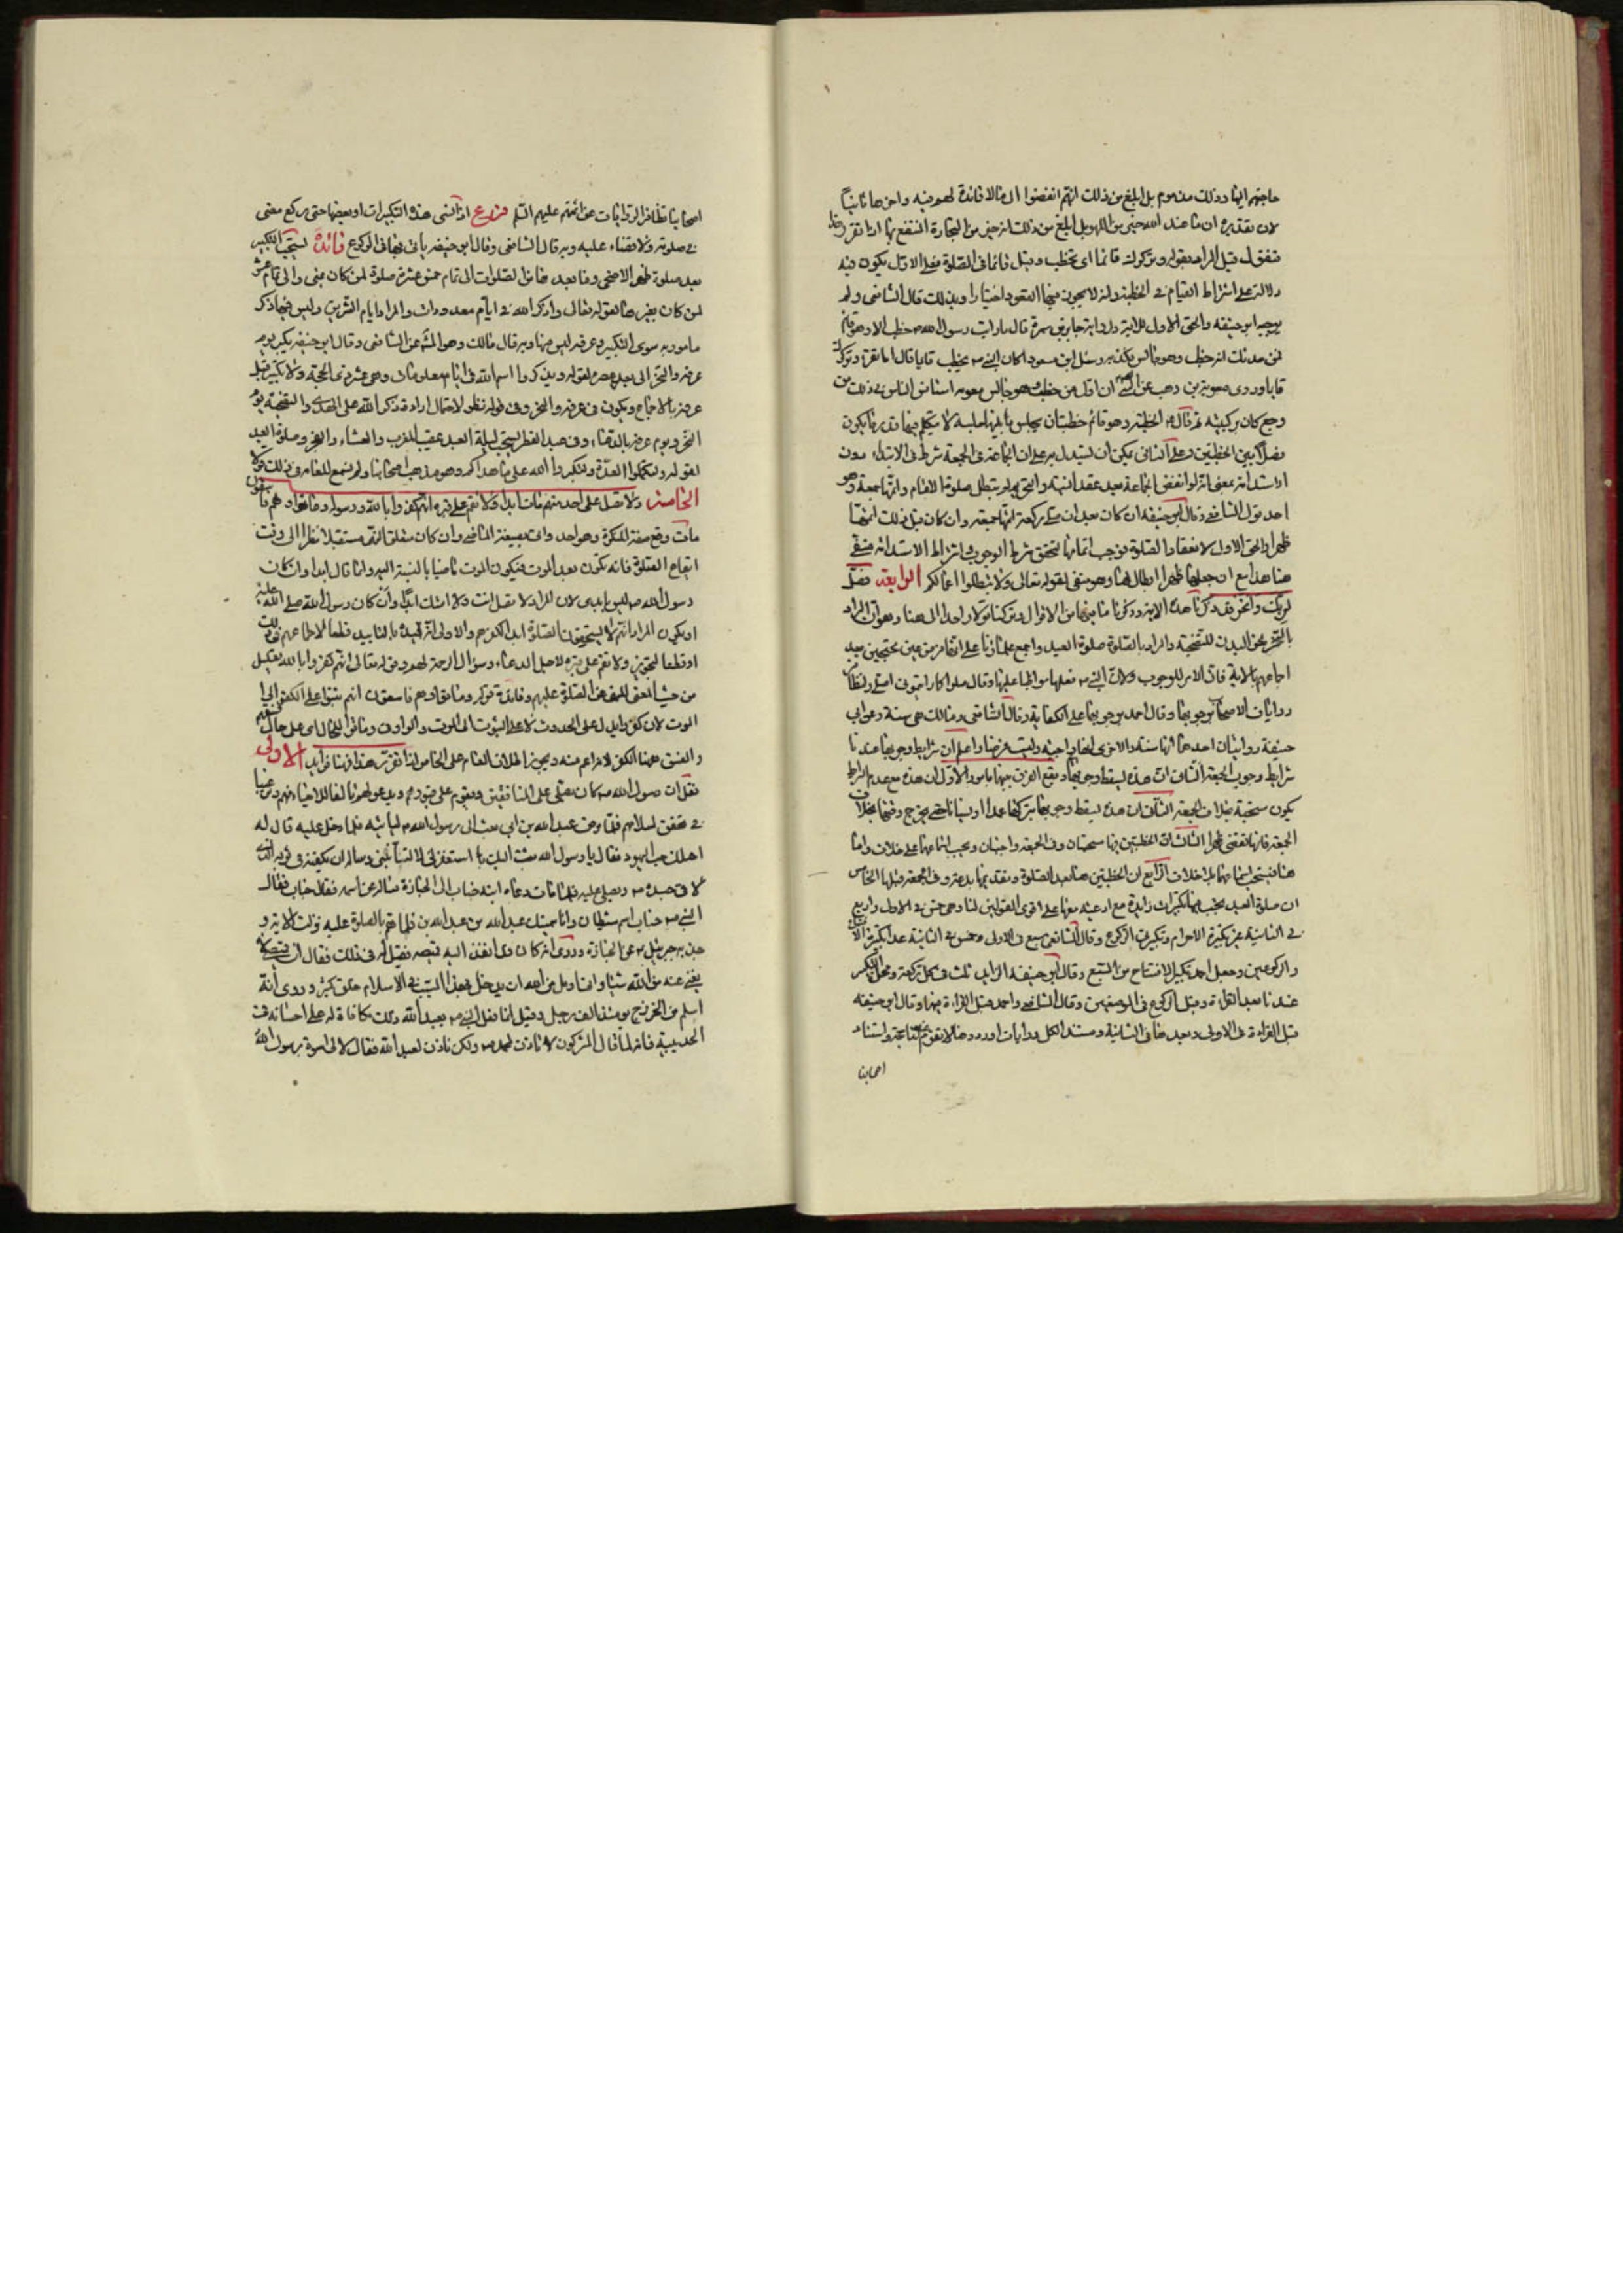 حاجتهم اليها وذلك مذموم بل ابلغ من ذلك انهم انفضوا الى ما لا فائدة لهم فيه واخرها ثانيا
لان تقديره ان ما عند الله خير من اللهو بل ابلغ من ذلك انه خير من التجارة المنتفع بها اذا تقرر هذا
فنقول قيل المراد بقوله وتركوك قائما اى تخطب وقيل قائما فى الصلوة فعلى الاول يكون فيه
دلالة على اشتراط القيام فى الخطبة وانه لا يجوز فيها القعود اختيارا وبذلك قال الشافعى ولم
يوجبه ابو حنيفه والحق الاول للاية ولرواية جابر بن سمرة قال ما رايت رسول الله ص خطب الا وهو قائم
فمن حدثك انه خطب وهو جالس فكذبه وسئل ابن مسعود اكان النبى ص يخطب قايما قال اما تقرا وتركوك
قايما وروى معوية بن وهب عن الص ان اول من خطب وهو جالس معويه استاذن الناس فى ذلك من
وجع كان بركبتيه ثم قال الخطبة وهو قائم خطبتان يجلس بينهما جلسة لا يتكلم فيها قدر ما يكون
فصلا بين الخطبتين وعلى الثانى يمكن ان يستدل به على ان الجماعة فى الجمعة شرط فى الابتداء دون
الاستدامة بمعنى انه لو انفض الجماعة بعد عقد النية والتحريمة لم يبطل صلوة الامام واتمها جمعة وهو
احد قول الشافعى وقال ابو حنيفه ان كان بعد ان صلى ركعة اتمها جمعة وان كان قبل ذلك اتمها
ظهرا والحق الاول لانعقاد الصلوة فوجب اتمامها لتحقق شرط الوجوب واشتراط الاستدامة منفى
هنا هذا مع ان جعلها ظهرا ابطال لها وهو منفى لقوله تعالى ولا تبطلوا اعمالكم الرابعة فصل
لربك وانحر قد ذكرنا هذه الاية وذكرنا ما فيها من الاقوال وتركنا قولا واحدا الى هنا وهو ان المراد
بالنحر نحر البدن للتضحية والمراد بالصلوة صلوة العيد واجمع علماؤنا على انها فرض عين محتجين بعد
اجماعهم بالاية فان الامر للوجوب ولان النبى ص فعلها مواظبا عليها وقال صلوا كما رايتمونى اصلى ولتظافر
روايات الاصحاب بوجوبها وقال احمد بوجوبها على الكفاية وقال الشافعى ومالك هى سنة وعن ابى
حنيفة روايتان احدهما انها سنة والاخرى انها واجبة وليست فرضا واعلم ان شرايط وجوبها عندنا
شرايط وجوب الجمعة
يكون مستحبة بخلاف الجمعة الثانى ان هذه يسقط وجوبها بتركها عمدا او نسيانا حتى يخرج وقتها بخلاف
الجمعة فانها تقضى ظهرا الثالث ان الخطبتين فيها مستحبتان وفى الجمعة واجبتان ويجب استماعهما على خلاف واما
هنا فيستحب استماعهما بلا خلاف الرابع ان الخطبتين هنا بعد الصلوة وتقديمها بدعة وفى الجمعة قبلها الخامس
ان صلوة العيد يجب فيها تكبيرات زايدة مع ادعية معها على اقوى القولين لنا وهى خمس فى الاولى واربع
فى الثانية غير تكبيرة الاحرام وتكبير الركوع وقال الشافعى سبع فى الاولى وخمس فى الثانية عدا تكبيرة
والركوعين وجعل احمد تكبير الافتتاح من السبع وقال ابو حنيفة الزايد ثلث فى كل ركعة ومحل التكبير
عندنا بعد القراءة وقبل الركوع فى الموضعين وقال الشافعى واحمد قبل القراءة فيهما وقال ابو حنيفه
قبل القراءة فى الاولى وبعدها فى الثانية ومستند الكل روايات
اصحابنا
اصحابنا تظافر الروايات عن ائمتهم عليهم السلم فروع اذا نسى هذه التكبيرات او بعضها حتى ركع مضى
فى صلوته ولا قضاء عليه وبه قال الشافعى وقال ابو حنيفه ياتى بها فى الركوع فائدة يستحب التكبير
بعد صلوة ظهر الاضحى وما بعدها من الصلوات الى تمام خمس عشرة صلوة لمن كان بمنى والى تمام عشر
لمن كان بغيرها لقوله تعالى واذكروا الله فى ايام معدودات والمراد ايام التشريق وليس فيها ذكر
مامور به سوى التكبير وعرفه ليس منها وبه قال مالك وهو المشهور عن الشافعى وقال ابو حنيفه يكبر يوم
عرفه والنحر الى بعد عصره لقوله ويذكروا اسم الله فى ايام معلومات وهى عشر ذى الحجة ولا تكبير قبل
عرفة بالاجماع ويكون فى عرفه والنحر وفى قوله نظر لاحتمال ارادة ذكر الله على الهدى والتضحية يوم
النحر ويوم عرفه بالدعاء وفى عيد الفطر يستحب ليلة العيد عقيب المغرب والعشاء والفجر وصلوة العيد
لقوله ولتكملوا العدة ولتكبروا الله على ما هداكم وهو مذهب اصحابنا
الخامسة ولا تصل على احد منهم مات ابدا ولا تقم على قبره انهم كفروا بالله ورسوله وماتوا وهم فاسقون
مات وقع صفة للنكرة وهو احد واتى بصيغة الماضى وان كان متعلق النهى مستقبلا نظرا الى وقت
ايقاع الصلوة فانه تكون بعد الموت فيكون الموت ماضيا بالنسبة اليه وانما قال ابدا وان كان
رسول الله ص ليس بابدى لان المراد لا تصل انت ولا امتك ابدا وان كان رسول الله صلى الله عليه
او يكون المراد انهم لا يستحقون الصلوة ابدا لكفرهم والاولى انه قيده بالتابيد قطعا لاطماعهم فى ذلك
او قطعا لتجويز ولا تقم على قبره لاجل الدعاء وسؤال الرحمة لهم وقوله تعالى انهم كفروا بالله تعليل
من حيث المعنى للنهى عن الصلوة عليهم وفائدة قوله وماتوا وهم فاسقون انهم ثبتوا على الكفر الى
الموت لان كفروا يدل على الحدوث لا على الثبوت الى الموت والواو فى وماتوا للحال اى على حال فسقهم
والفسق ههنا الكفر لانه اعم منه ويجوز اطلاق العام على الخاص اذا تقرر هذا فهنا فوايد الاولى
نقل ان رسول الله ص كان يصلى على المنافقين ويقوم على قبورهم ويدعو لهم
فى تحقق اسلامهم فلما مرض عبد الله بن ابى بعث الى رسول الله ص لياتيه فلما دخل عليه قال له
اهلكك حب اليهود فقال يا رسول الله بعثت اليك لتستغفر لى لا لتؤنبنى وساله ان يكفنه فى ثوبه الذى
لاقى جسده ص ويصلى عليه فلما مات دعاه ابنه حباب الى الجنازة فساله عن اسمه فقال حباب فقال
النبى ص حباب اسم شيطان وانما سميتك عبد الله بن عبد الله بن فلما هم بالصلوة عليه نزلت الاية و
جذبه جبرئيل ص عن الجنازة وروى انه كان قد انفذ اليه قميصه فقيل له فى ذلك فقال ان قميصى لا
يغنى عنه من الله شيئا وانما اؤمل من الله ان يدخل بهذا السبب فى الاسلام خلق كثير وروى انه
اسلم من الخزرج يومئذ الف رجل وقيل انما فعل النبى ص بعبد الله ذلك مكافاة له على احسانه فى
الحديبية فانه لما قال المشركون لا ناذن لمحمد ص ولكن ناذن لعبد الله فقال لا لى اسوة برسول الله